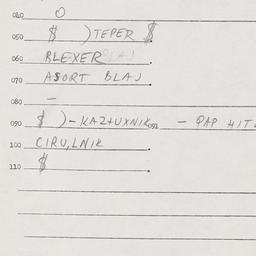 040 O
050 $ ) TEPER $
060 BLEXER BLAJ
070 ASORT BLAJ
080 —
090 $ ) - KAZTUXNIK 091 - PAP HIT
100 CIRU,LNIK
110 $